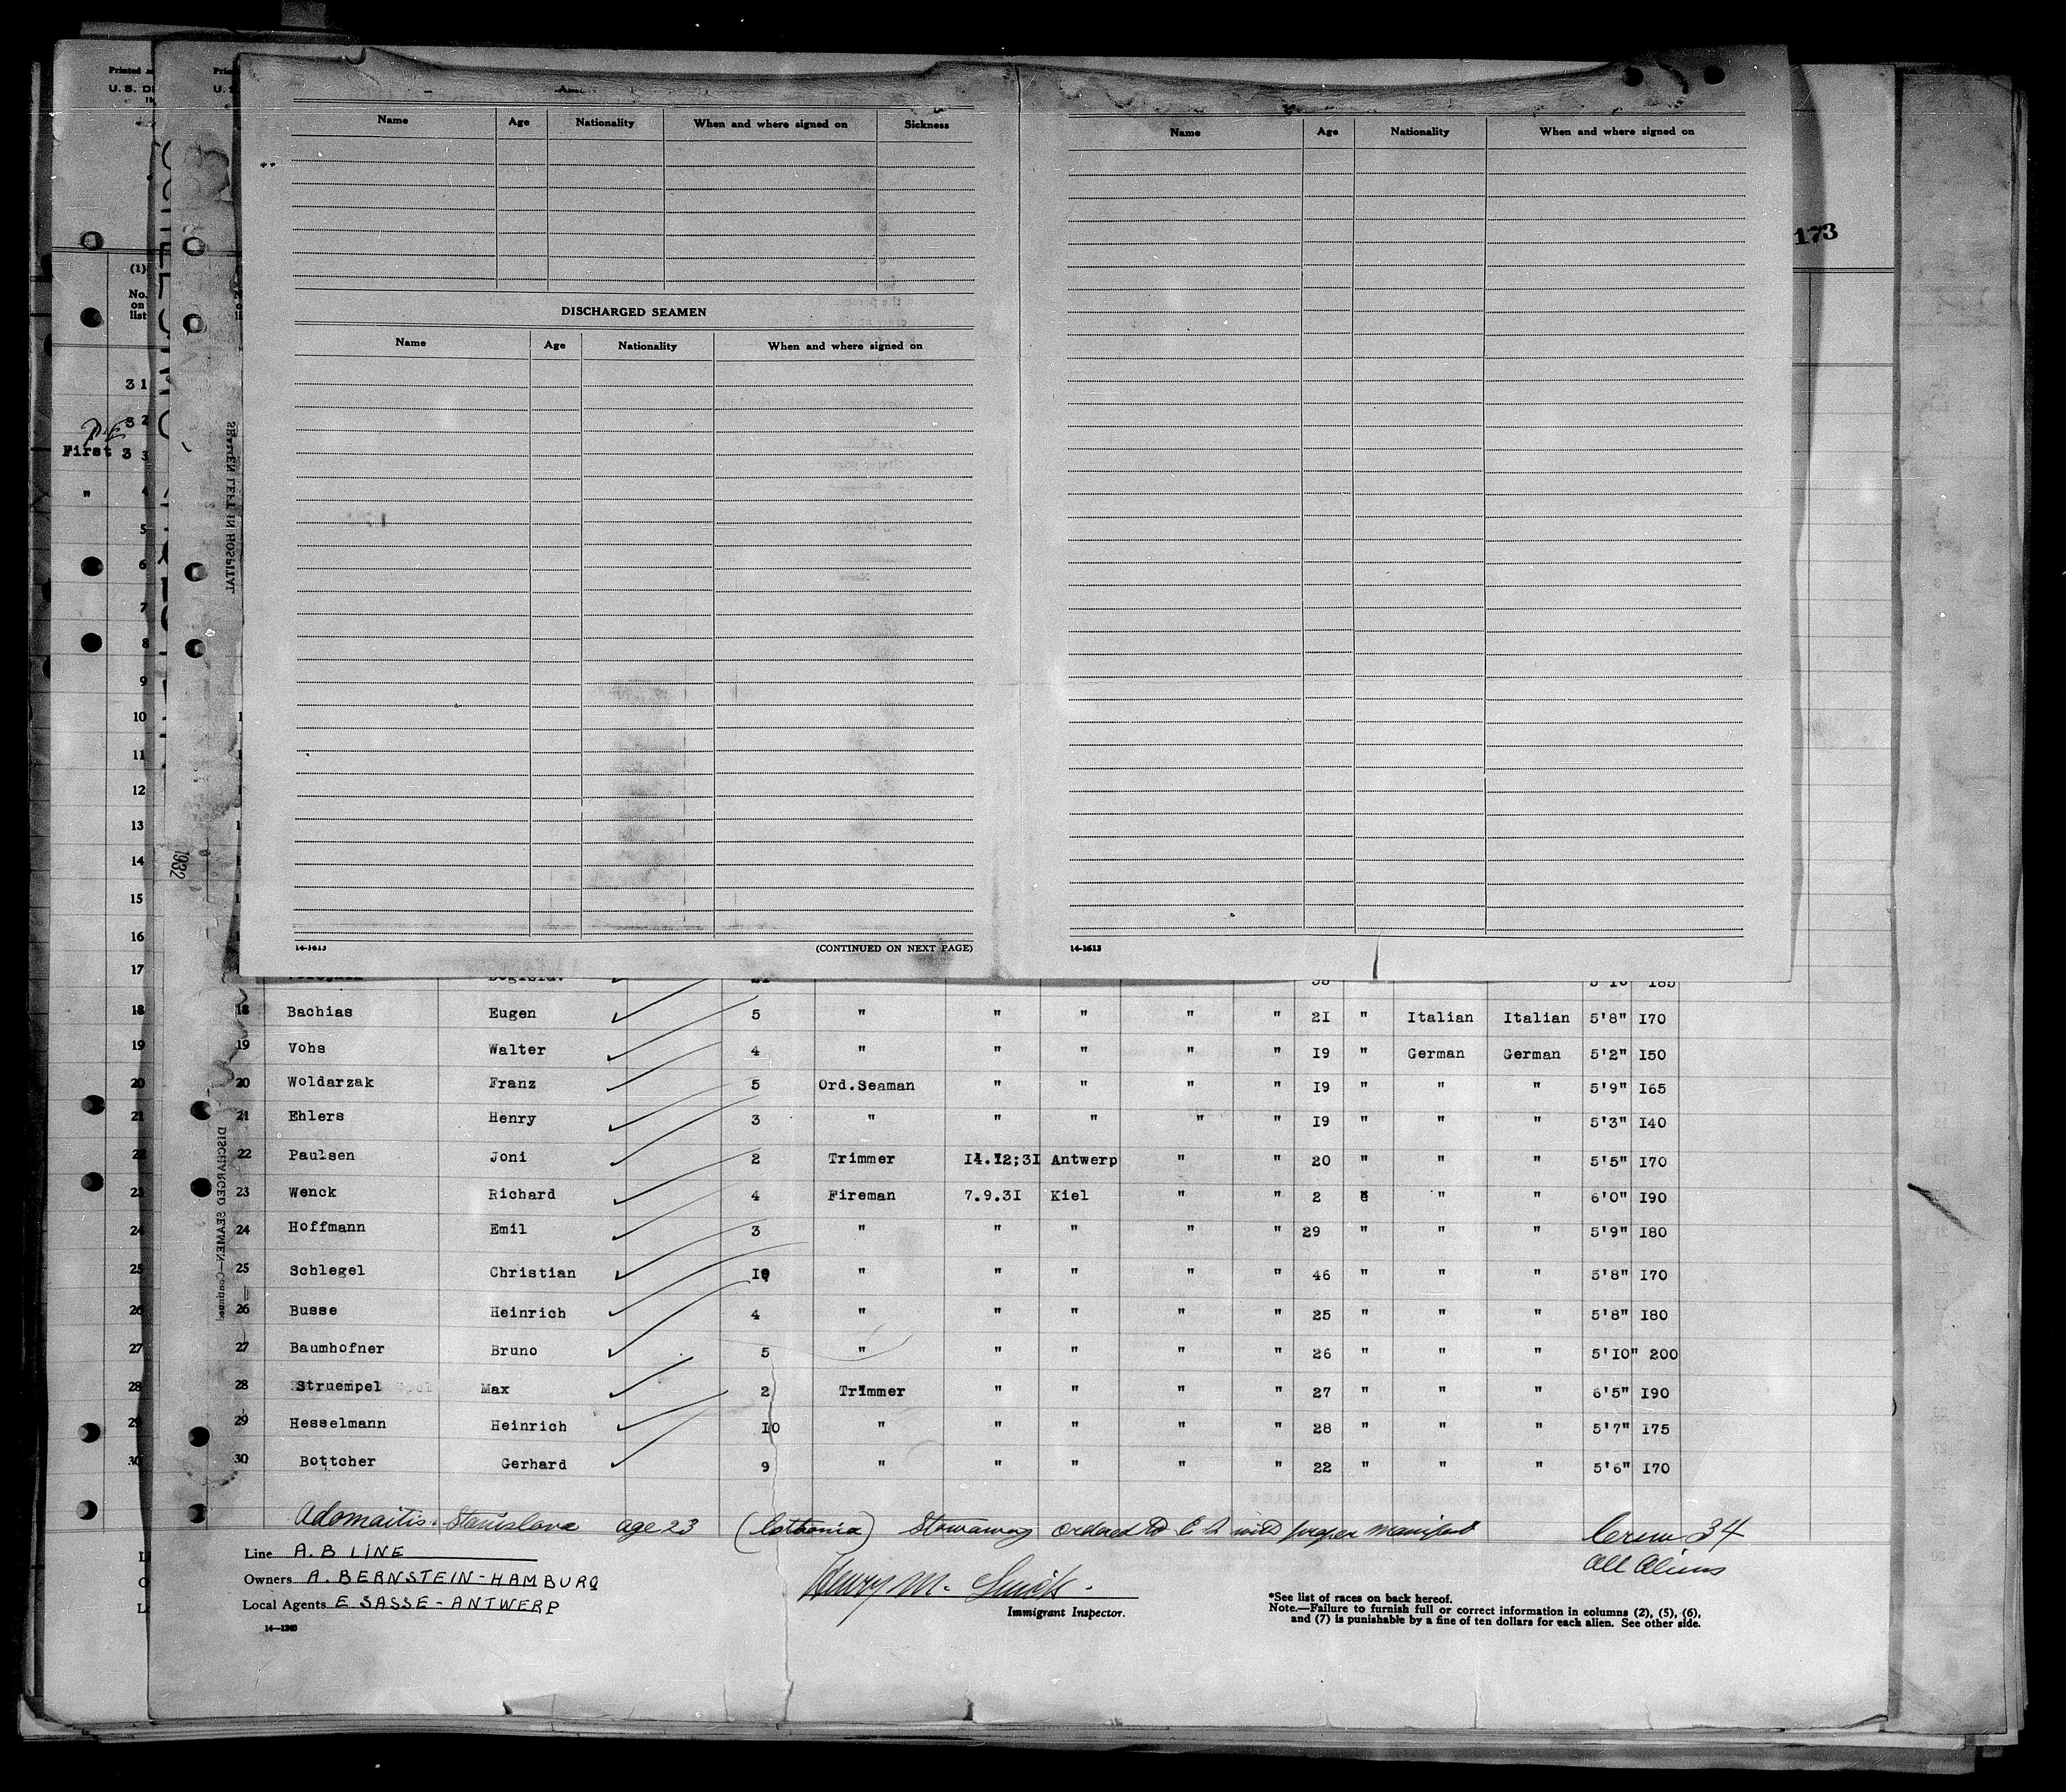 Printed
U. S. D
173
Name Age Nationality When and where signed on Sickness
DISCHARGED SEAMEN
Name Age Nationality When and where signed on
14-1613 (CONTINUED ON NEXT PAGE)
Name Age Nationality When and where signed on
14-1613
(1)
No.
on
list
31
32
First 3 3
" 4
5
6
7
8
9
10
11
12
13
14
15
16
17
SEAMEN LEFT IN HOSPITAL
1932
DISCHARGED SEAMEN—Continued
18 18 Bachias Eugen 5 " " " " " 21 " Italian Italian 5'8" 170
19 19 Vohs Walter 4 " " " " " 19 " German German 5'2" 150
20 20 Woldarzak Franz 5 Ord.Seaman " " " " 19 " " " 5'9" 165
21 21 Ehlers Henry 3 " " " " " 19 " " " 5'3" 140
22 22 Paulsen Joni 2 Trimmer 14.12;31 Antwerp " " 20 " " " 5'5" 170
23 23 Wenck Richard 4 Fireman 7.9.31 Kiel " " 2 " " 6'0" 190
24 24 Hoffmann Emil 3 " " " " " 29 " " " 5'9" 180
25 25 Schlegel Christian 10 " " " " " 46 " " " 5'8" 170
26 26 Busse Heinrich 4 " " " " " 25 " " " 5'8" 180
27 27 Baumhofner Bruno 5 " " " " " 26 " " " 5'10" 200
28 28 Struempel Max 2 Trimmer " " " " 27 " " " 6'5" 190
29 29 Hesselmann Heinrich 10 " " " " " 28 " " " 5'7" 175
30 30 Bottcher Gerhard 9 " " " " " 22 " " " 5'6" 170
Adomaitis. Stanislava age 23 Stowaway ordered to with proper manifest 34
All Aliens
Line A. B LINE
Owners A. BERNSTEIN-HAMBURG
Local Agents E SASSE-ANTWERP
14-1240
Henry M.
Immigrant Inspector.
*See list of races on back hereof.
Note.—Failure to furnish full or correct information in columns (2), (5), (6),
and (7) is punishable by a fine of ten dollars for each alien. See other side.